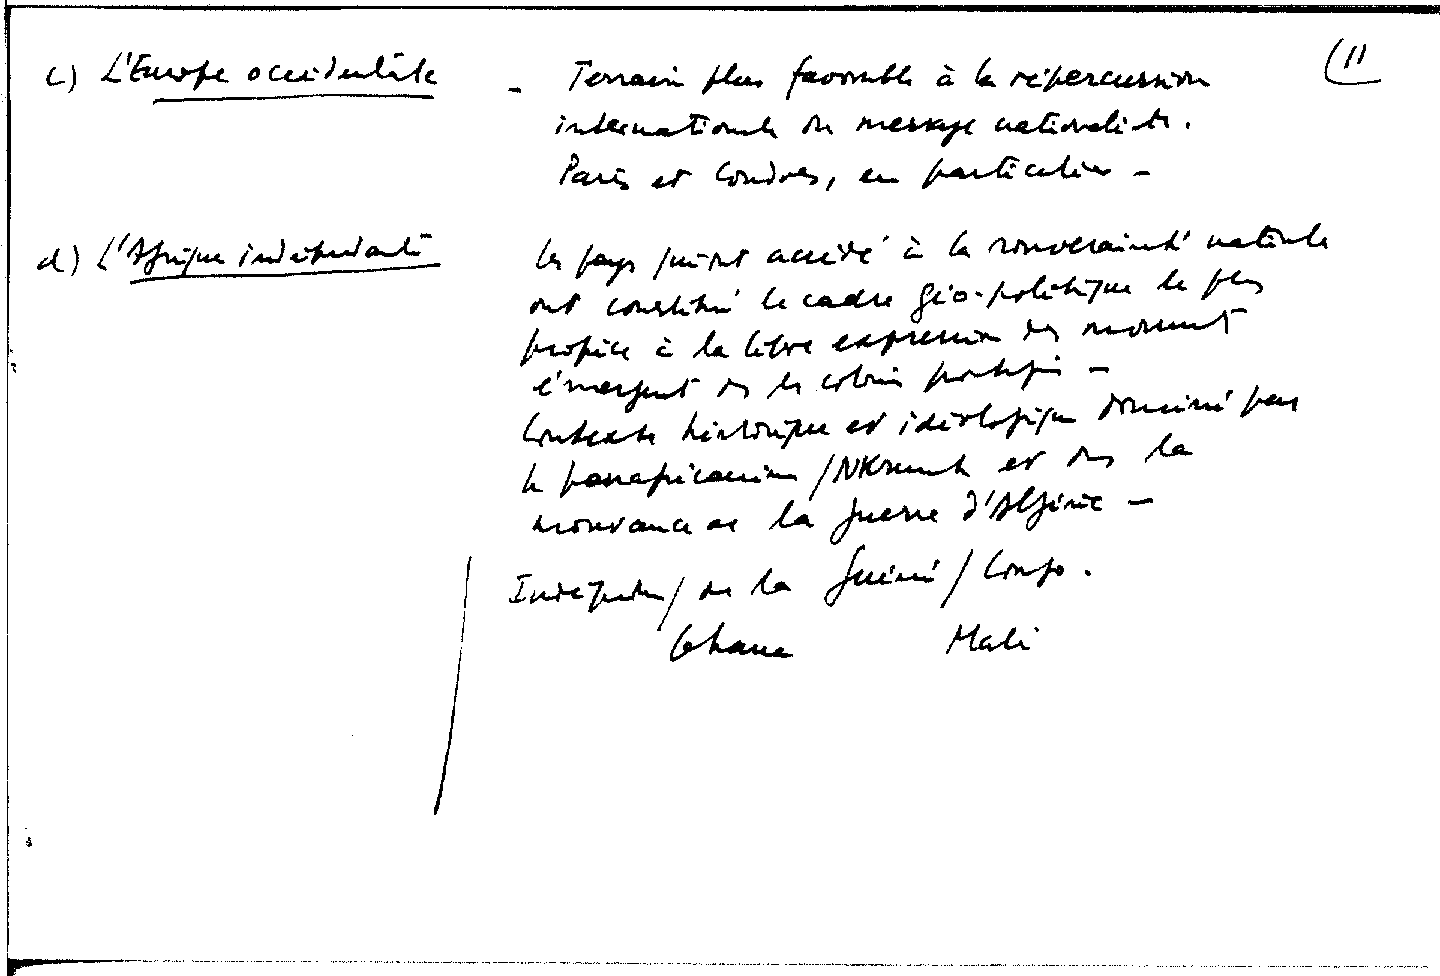 (11
c) L'Europe occidentale - Terrain plus favorable à la répercussion
internationale du message nationaliste.
Paris et Londres, en particulier -
d) L'Afrique indépendante Les pays qui ont accédé à la souveraineté nationale
ont constitué le cadre géo-politique le plus
propice à la libre expression des mouvement
émergent des les colonies portugaises -
Contexte historique et idéologique dominé par
le panafricanisme / NKrumah et dans la
mouvance de la guerre d'Algérie -
Indépendan/ de la Guinée / Congo.
Ghana Mali